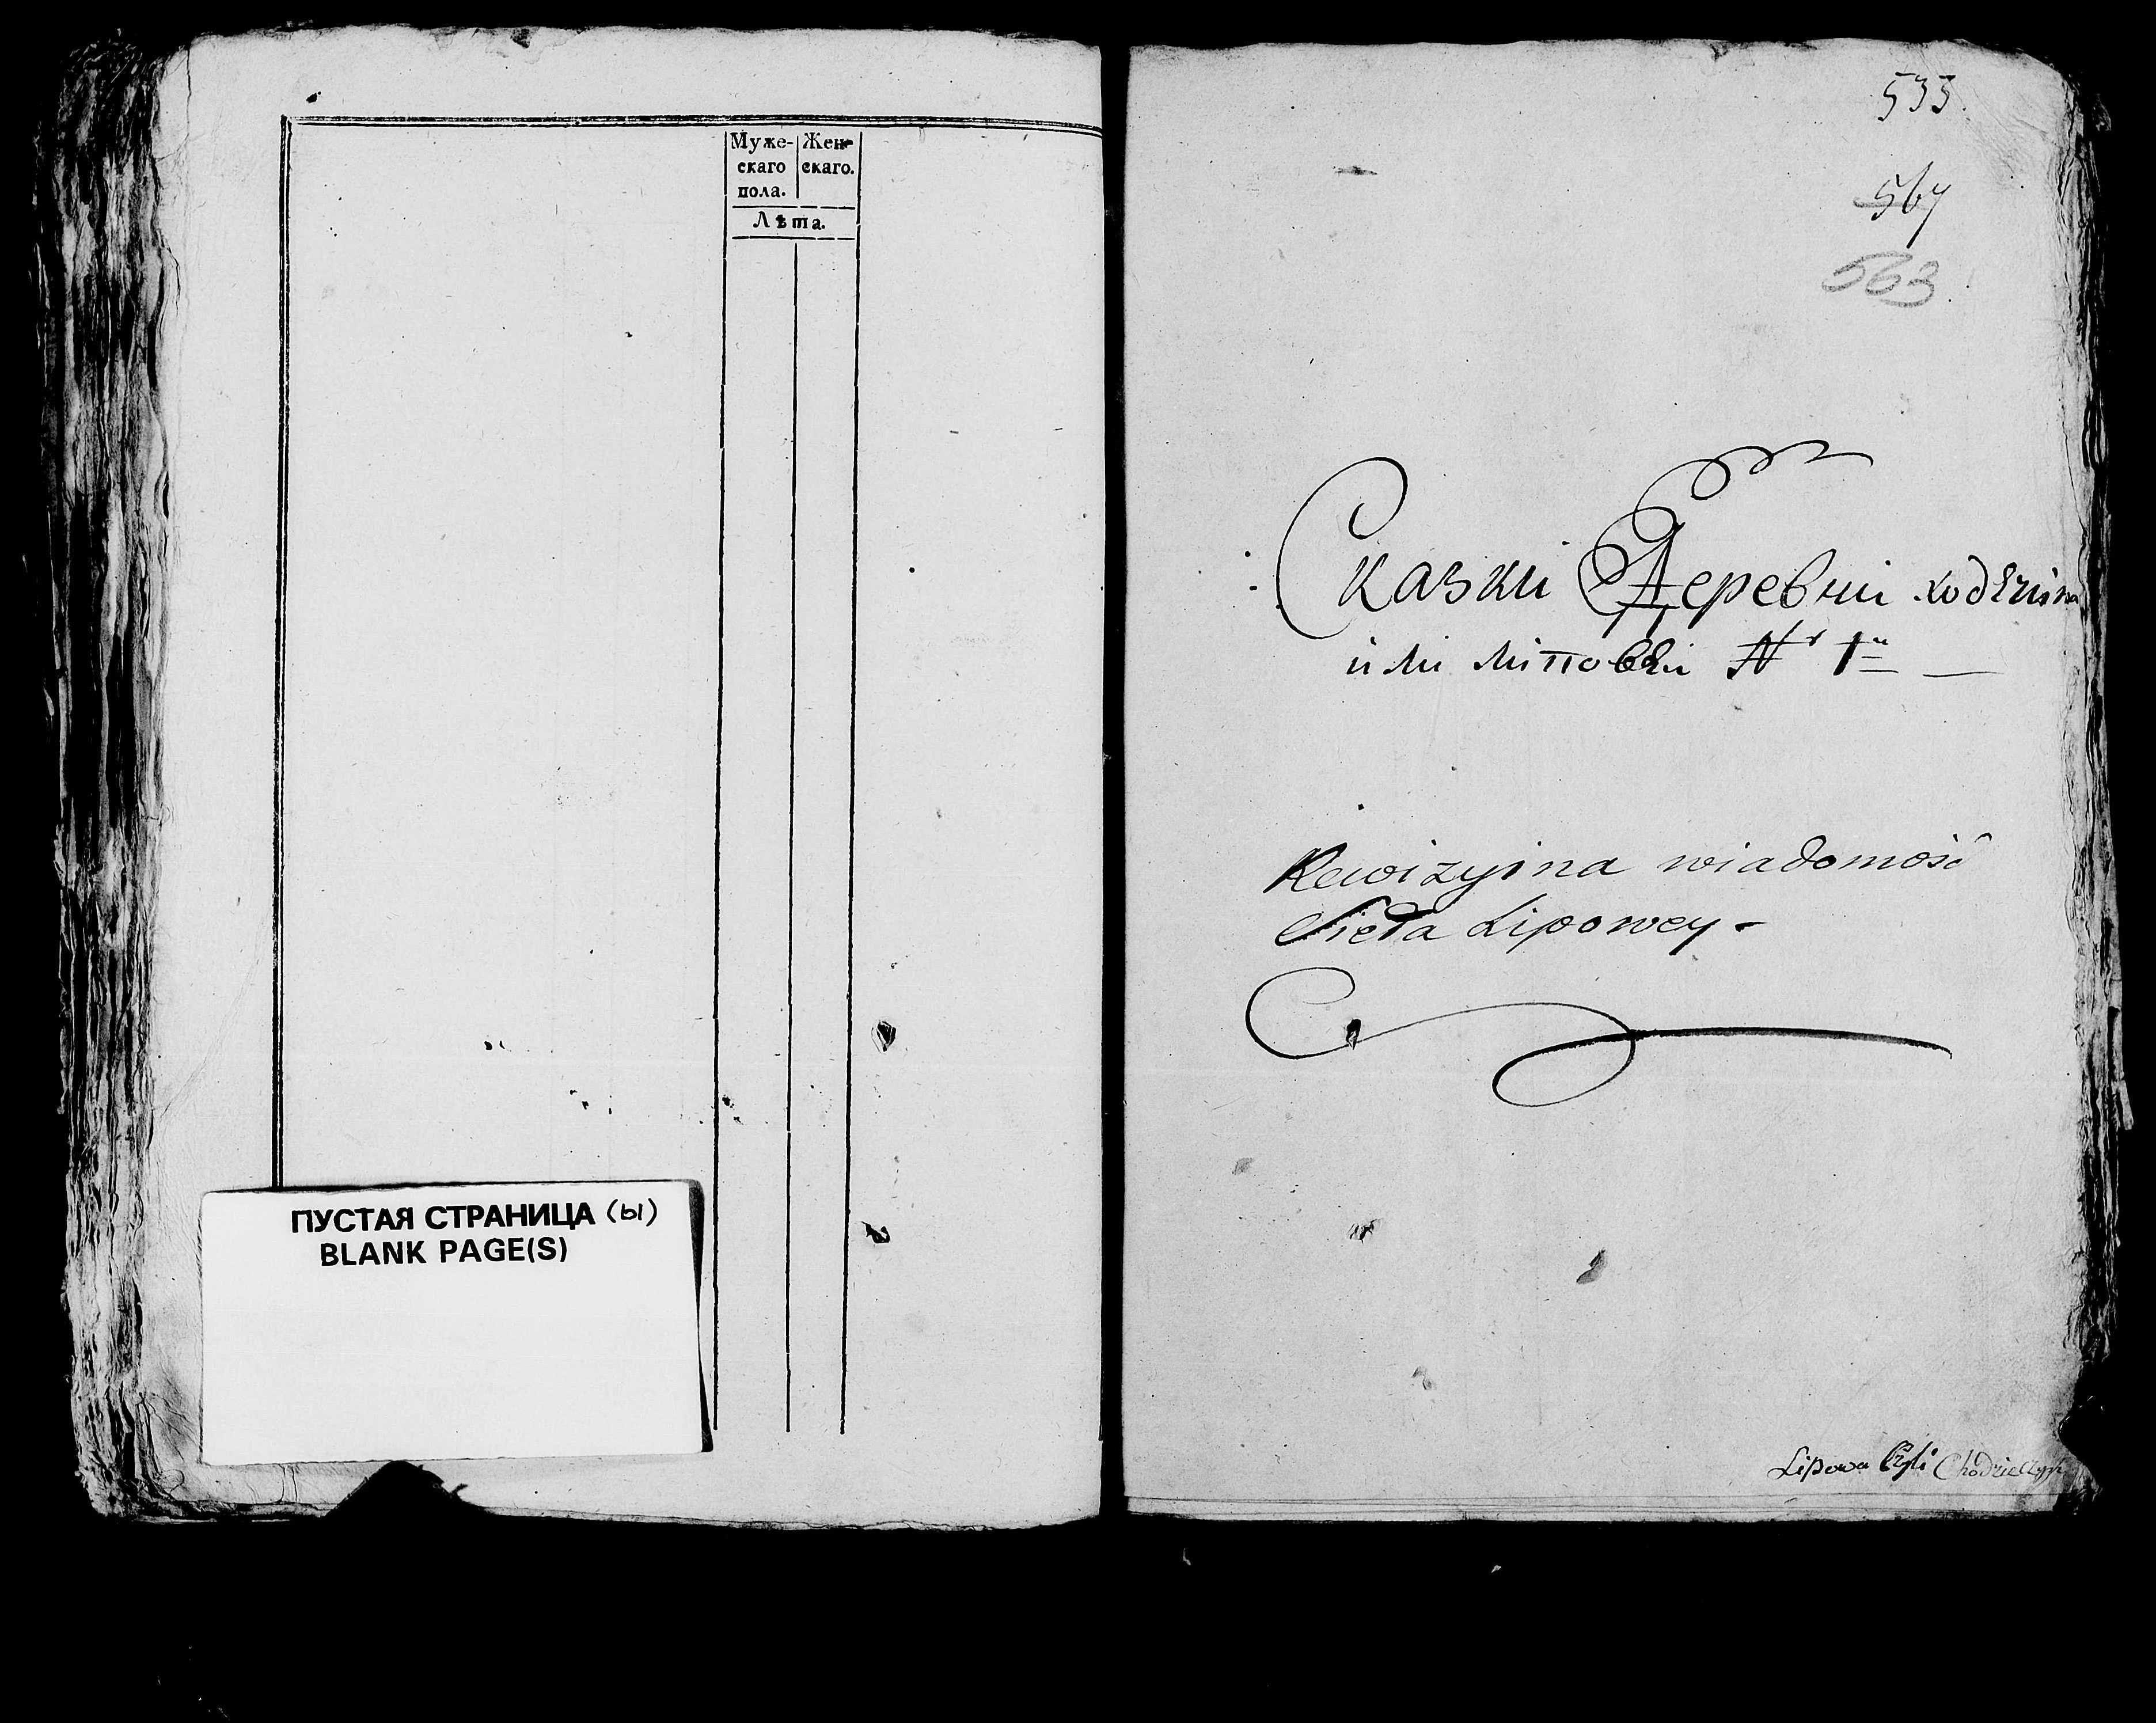 Муже-
скаго
пола.
Жен-
скаго.
Лѣта.
ПУСТАЯ СТРАНИЦА (ы)
BLANK PAGE(S)
533
567
563
Сказки Деревни
или Липовки № 1
Rewizyina wiadomość
Sieła Lipowey
Lipowa Czyli